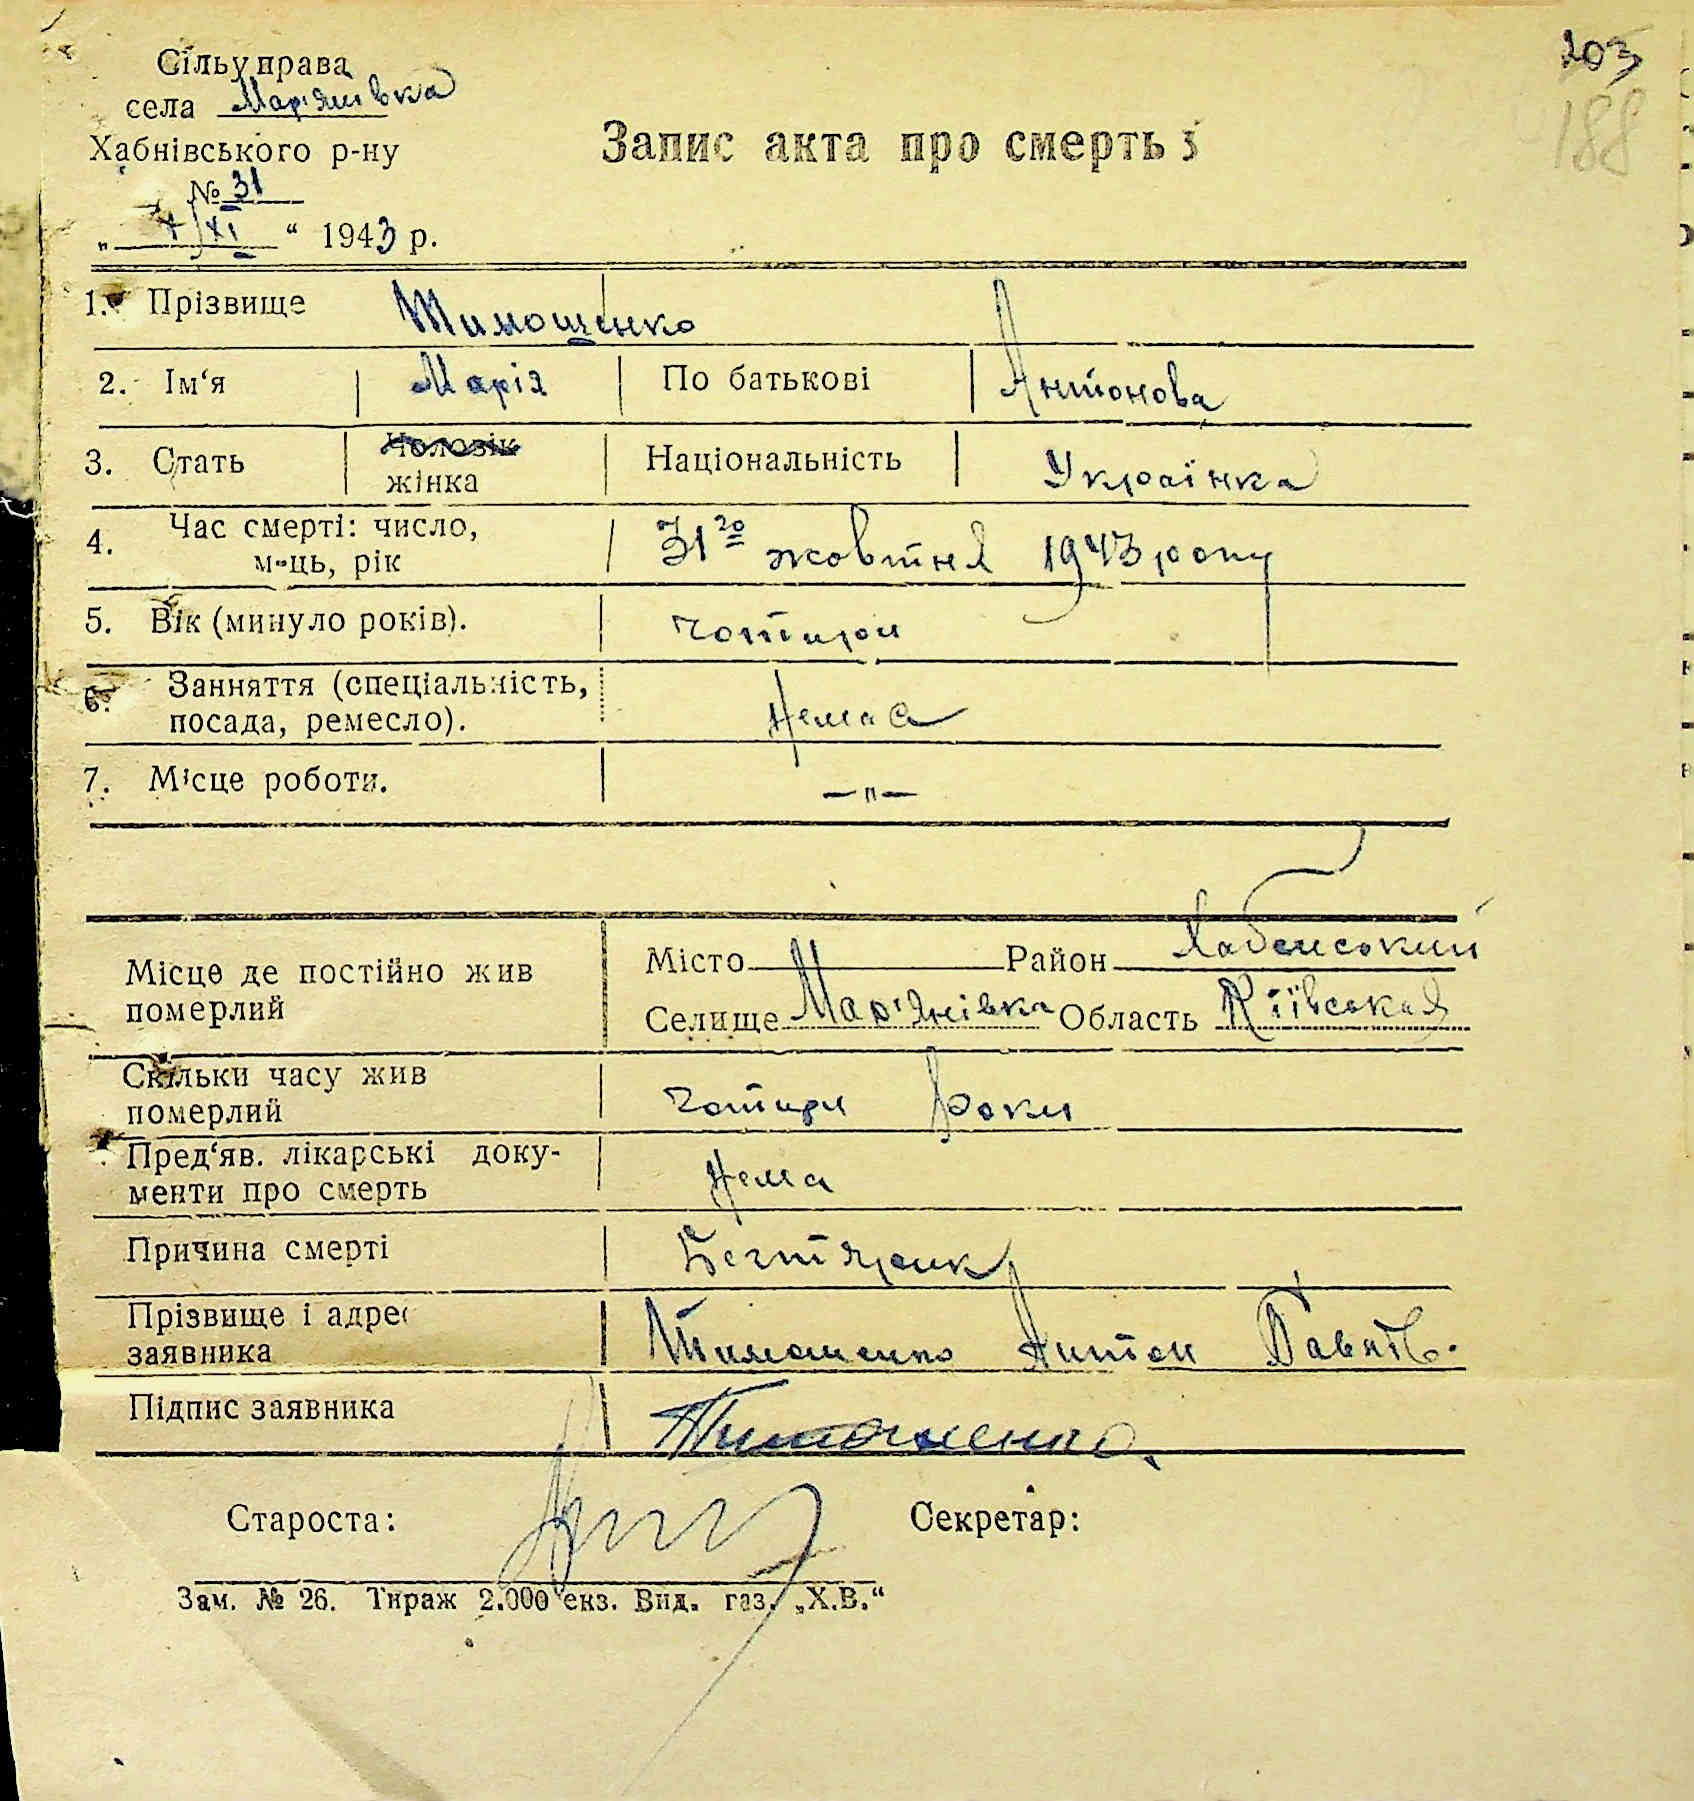 203
188
Сільуправа
села Мар'янівка
Хабнівського р-ну
№ 31
„ /XI “ 1943 р.
Запис акта про смерть
1. Прізвище Тимошенко
2. Ім‘я Марія По батькові Антонова
3. Стать Чоловік жінка Національність Українка
4. Час смерті: число, м-ць, рік 31го жовтня 1943 року
5. Вік (минуло років). чотири
6. Занняття (спеціальність, посада, ремесло). Немає
7. Місце роботи. —"—
Місце де постійно жив померлий
Місто Район Хабенський
Селище Мар'янівка Область Київська
Скільки часу жив померлий чотири роки
Пред‘яв. лікарські документи про смерть Нема
Причина смерті
Прізвище і адрес заявника Тимошенко Антон
Підпис заявника Тимошенко
Староста: Секретар:
Зам. № 26. Тираж 2.000 екз. Вид. газ. „Х.В.“